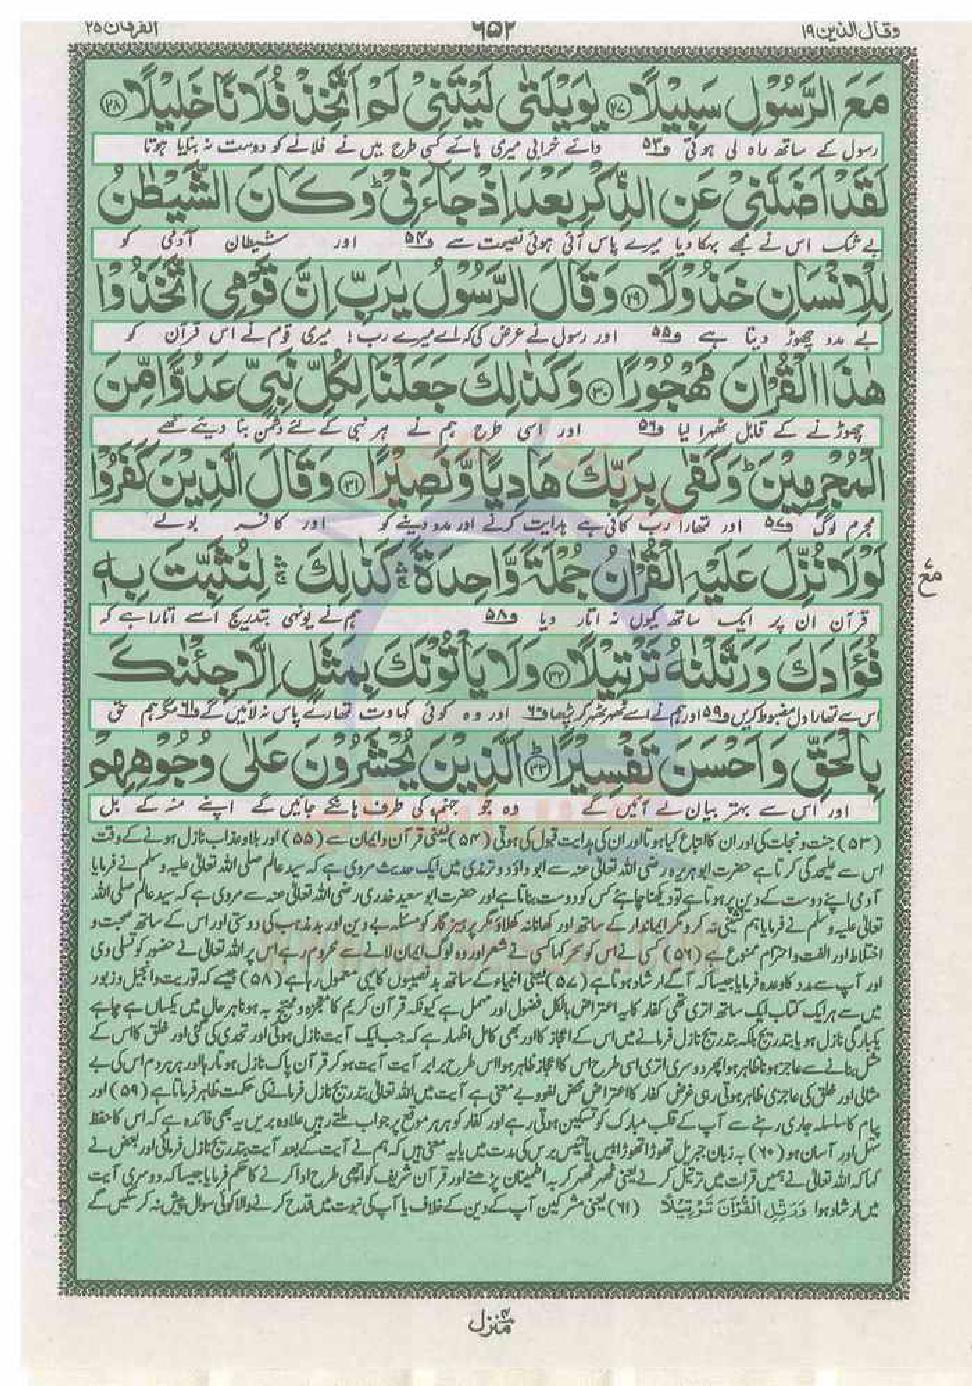 وقال الذین ۱۹
۶۵۲
الفرقان ۲۵
مَعَ الرَّسُوْلِ سَبِیْلًا ﴿۲۷﴾ یٰوَیْلَتٰی لَیْتَنِیْ لَمْ اَتَّخِذْ فُلَانًا خَلِیْلًا ﴿۲۸﴾
رسول کے ساتھ راہ لی ہوتی ف۵۳ وائے خرابی میری ہائے کسی طرح میں نے فلانے کو دوست نہ بنایا ہوتا
لَقَدْ اَضَلَّنِیْ عَنِ الذِّكْرِ بَعْدَ اِذْ جَآءَنِیْؕ وَ كَانَ الشَّیْطٰنُ
بے شک اس نے مجھے بہکا دیا میرے پاس آئی ہوئی نصیحت سے ف۵۴ اور شیطان آدمی کو
لِلْاِنْسَانِ خَذُوْلًا ﴿۲۹﴾ وَ قَالَ الرَّسُوْلُ یٰرَبِّ اِنَّ قَوْمِی اتَّخَذُوْا
بے مدد چھوڑ دیتا ہے ف۵۵ اور رسول نے عرض کی کہ اے میرے رب! میری قوم نے اس قرآن کو
هٰذَا الْقُرْاٰنَ مَهْجُوْرًا ﴿۳۰﴾ وَ كَذٰلِكَ جَعَلْنَا لِكُلِّ نَبِیٍّ عَدُوًّا مِّنَ
چھوڑنے کے قابل ٹھہرا لیا ف۵۶ اور اسی طرح ہم نے ہر نبی کے لئے دشمن بنا دیئے تھے
الْمُجْرِمِیْنَؕ وَ كَفٰى بِرَبِّكَ هَادِیًا وَّ نَصِیْرًا ﴿۳۱﴾ وَ قَالَ الَّذِیْنَ كَفَرُوْا
مجرم لوگ ف۵۷ اور تمھارا رب کافی ہے ہدایت کرنے اور مدد دینے کو اور کافر بولے
لَوْ لَا نُزِّلَ عَلَیْهِ الْقُرْاٰنُ جُمْلَةً وَّاحِدَةً ۚۛ كَذٰلِكَ ۚۛ لِنُثَبِّتَ بِهٖ
مع
قرآن ان پر ایک ساتھ کیوں نہ اتار دیا ف۵۸ ہم نے یونہی بتدریج اسے اتارا ہے کہ
فُؤَادَكَ وَ رَتَّلْنٰهُ تَرْتِیْلًا ﴿۳۲﴾ وَ لَا یَاْتُوْنَكَ بِمَثَلٍ اِلَّا جِئْنٰكَ
اس سے تمھارا دل مضبوط کریں ف۵۹ اور ہم نے اسے ٹھہر ٹھہر کر پڑھا ف۶۰ اور وہ کوئی کہاوت تمھارے پاس نہ لائیں گے ف۶۱ مگر ہم حق
بِالْحَقِّ وَ اَحْسَنَ تَفْسِیْرًا ﴿۳۳﴾ اَلَّذِیْنَ یُحْشَرُوْنَ عَلٰى وُجُوْهِهِمْ
اور اس سے بہتر بیان لے آئیں گے وہ جو جہنم کی طرف ہانکے جائیں گے اپنے منہ کے بل
(۵۳) جنت و نجات کی اور ان کا اتباع کیا ہوتا اور ان کی ہدایت قبول کی ہوتی (۵۴) یعنی قرآن و ایمان سے (۵۵) اور بلاء و عذاب نازل ہونے کے وقت
اس سے علیحدگی کرتا ہے حضرت ابو ہریرہ رضی اللہ تعالیٰ عنہ سے ابو داؤد و ترمذی میں ایک حدیث مروی ہے کہ سید عالم صلی اللہ تعالیٰ علیہ وسلم نے فرمایا
آدمی اپنے دوست کے دین پر ہوتا ہے تو دیکھنا چاہئے کس کو دوست بناتا ہے اور حضرت ابو سعید خدری رضی اللہ تعالیٰ عنہ سے مروی ہے کہ سید عالم صلی اللہ
تعالیٰ علیہ وسلم نے فرمایا ہم نشینی نہ کرو مگر ایماندار کے ساتھ اور کھانا نہ کھلاؤ مگر پرہیزگار کو مسئلہ بے دین اور بد مذہب کی دوستی اور اس کے ساتھ صحبت و
اختلاط اور الفت و احترام ممنوع ہے (۵۶) کسی نے اس کو سحر کہا کسی نے شعر اور وہ لوگ ایمان لانے سے محروم رہے اس پر اللہ تعالیٰ نے حضور کو تسلی دی
اور آپ سے مدد کا وعدہ فرمایا جیسا کہ آگے ارشاد ہوتا ہے (۵۷) یعنی انبیاء کے ساتھ بد نصیبوں کا یہی معمول رہا ہے (۵۸) جیسے کہ توریت و انجیل و زبور
میں سے ہر ایک کتاب ایک ساتھ اتری تھی کفار کا یہ اعتراض بالکل فضول اور مہمل ہے کیونکہ قرآن کریم کا معجزہ و محتج بہ ہونا ہر حال میں یکساں ہے چاہے
یکبارگی نازل ہو یا بتدریج بلکہ بتدریج نازل فرمانے میں اس کے اعجاز کا اور بھی کامل اظہار ہے کہ جب ایک آیت نازل ہوئی اور تحدی کی گئی اور خلق کا اس کے
مثل بنانے سے عاجز ہونا ظاہر ہوا پھر دوسری اتری اسی طرح اس کا اعجاز ظاہر ہوا اس طرح برابر آیت آیت ہو کر قرآن پاک نازل ہوتا رہا اور ہر ہر دم اس کی بے
مثالی اور خلق کی عاجزی ظاہر ہوتی رہی غرض کفار کا اعتراض محض لغو و بے معنی ہے آیت میں اللہ تعالیٰ بتدریج نازل فرمانے کی حکمت ظاہر فرماتا ہے (۵۹) اور
پیام کا سلسلہ جاری رہنے سے آپ کے قلب مبارک کو تسکین ہوتی رہے اور کفار کو ہر ہر موقع پر جواب ملتے رہیں علاوہ بریں یہ بھی فائدہ ہے کہ اس کا حفظ
سہل اور آسان ہو (۶۰) بہ زبان جبریل تھوڑا تھوڑا بیس یا تیئیس برس کی مدت میں یا یہ معنی ہیں کہ ہم نے آیت کے بعد آیت بتدریج نازل فرمائی اور بعض نے
کہا کہ اللہ تعالیٰ نے ہمیں قراءت میں ترتیل کرنے یعنی ٹھہر ٹھہر کر بہ اطمینان پڑھنے اور قرآن شریف کو اچھی طرح ادا کرنے کا حکم فرمایا جیسا کہ دوسری آیت
میں ارشاد ہوا وَرَتِّلِ الْقُرْآنَ تَرْتِیْلًا (۶۱) یعنی مشرکین آپ کے دین کے خلاف یا آپ کی نبوت میں قدح کرنے والا کوئی سوال پیش نہ کر سکیں گے
منزل ۴